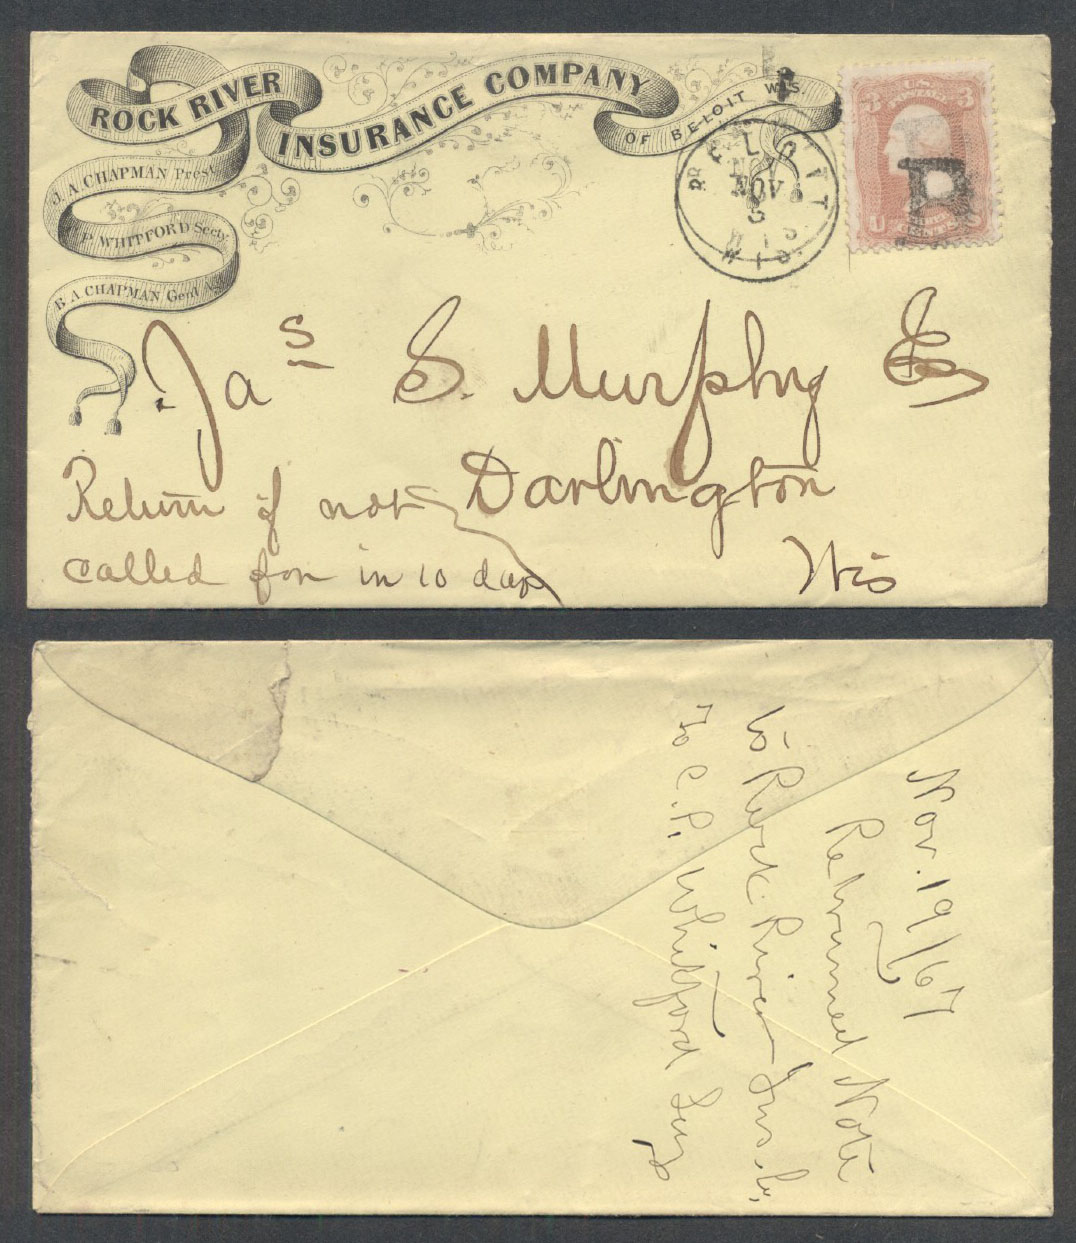 ROCK RIVER INSURANCE COMPANY
OF BELOIT WIS.
J. A. CHAPMAN Prest.
P. WHITFORD Secty.
B A CHAPMAN Genl Ag
BELOIT
NOV
NOV
WIS
WIS.
U.S. POSTAGE
3 3
U S
CENTS
B
Jas S. Murphy Esq
Darlington
Wis
Return if not
called for in 10 days
Nov. 19/67
Returned Note
to Rock River Ins. Co,
To C. P. Whitford Secy